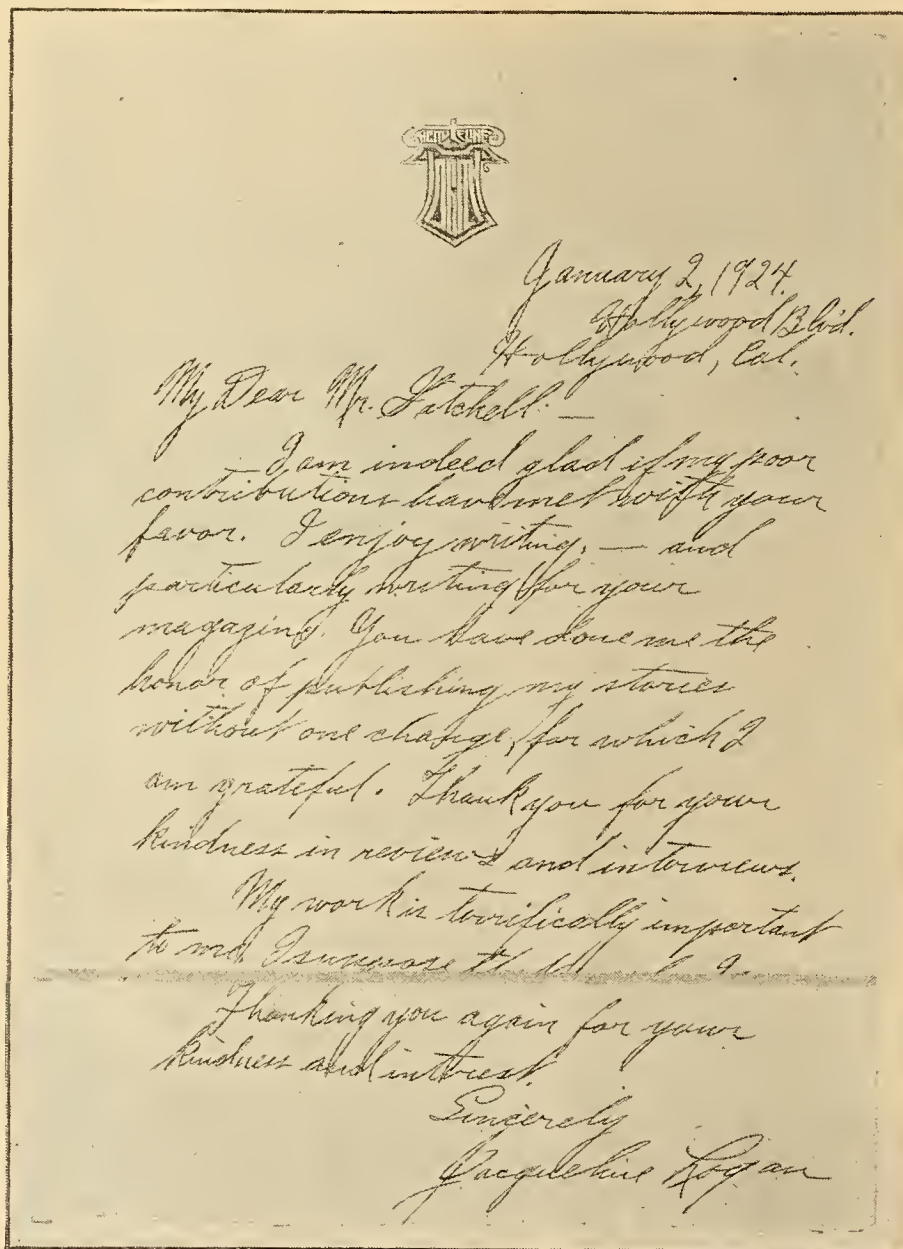 January 2, 1924.
Hollywood Blvd.
Hollywood, Cal.
My Dear Mr. —
I am indeed glad if my poor
contributions have met with your
favor. I enjoy writing, — and
particularly writing for your
magazine. You have done me the
honor of publishing my stories
without one change, for which I
am grateful. Thank you for your
kindness in reviews and interviews.
My work is terrifically important
to me. I suppose
Thanking you again for your
kindness and interest.
Sincerely
Jacqueline Logan